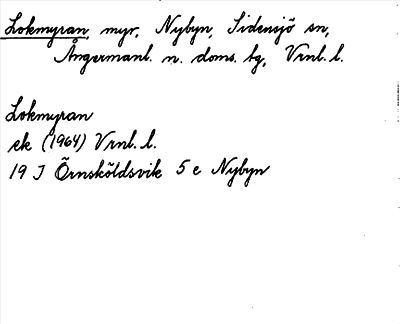 Lokmyran, myr, Nybyn, Sidensjö sn,
Ångermanl. n. doms. tg, Vrnl. l.
Lokmyran
ek (1964) Vrnl. l.
19 J Örnsköldsvik 5 e Nybyn